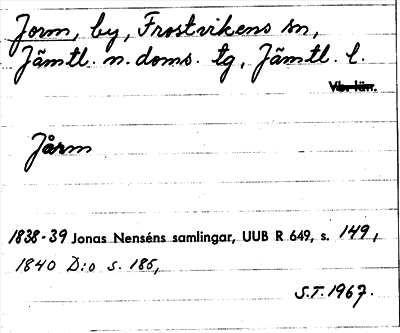 Jorm, by, Frostvikens sn,
Jämtl. n. doms. tg, Jämtl. l.
Vbn län.
Jårm
1838-39 Jonas Nenséns samlingar, UUB R 649, s. 149,
1840 D:o s. 185,
S.T. 1967.